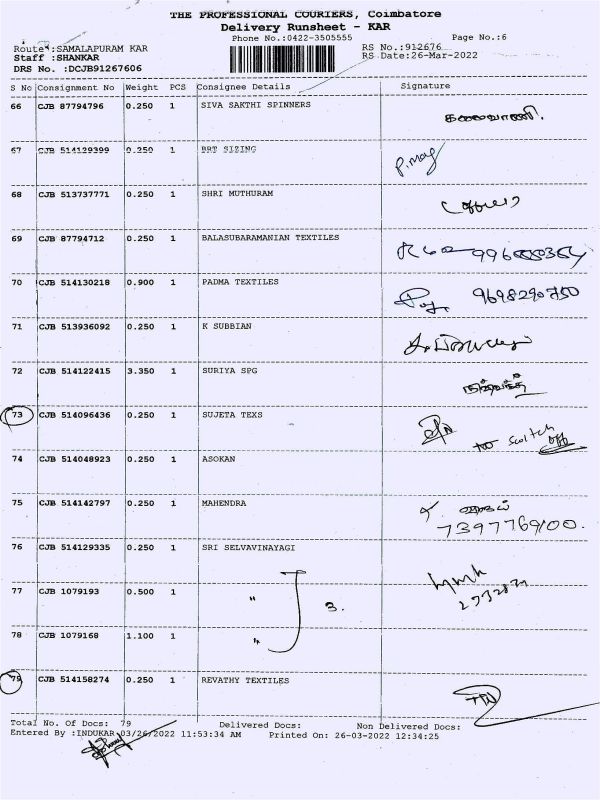 THE PROFESSIONAL COURIERS, Coimbatore
Delivery Runsheet - KAR
Phone No.:0422-3505555 Page No.:6
Route :SAMALAPURAM KAR RS No.:912676
Staff :SHANKAR RS Date:26-Mar-2022
DRS No. :DCJB91267606
S No Consignment No Weight PCS Consignee Details Signature
66 CJB 87794796 0.250 1 SIVA SAKTHI SPINNERS கலைவாணி.
67 CJB 514129399 0.250 1 BRT SIZING
68 CJB 513737771 0.250 1 SHRI MUTHURAM
69 CJB 87794712 0.250 1 BALASUBARAMANIAN TEXTILES
70 CJB 514130218 0.900 1 PADMA TEXTILES 9698290750
71 CJB 513936092 0.250 1 K SUBBIAN
72 CJB 514122415 3.350 1 SURIYA SPG
73 CJB 514096436 0.250 1 SUJETA TEXS Switch off
74 CJB 514048923 0.250 1 ASOKAN
75 CJB 514142797 0.250 1 MAHENDRA
7397769100.
76 CJB 514129335 0.250 1 SRI SELVAVINAYAGI
77 CJB 1079193 0.500 1 " 3.
78 CJB 1079168 1.100 1 "
79 CJB 514158274 0.250 1 REVATHY TEXTILES
Total No. Of Docs: 79 Delivered Docs: Non Delivered Docs:
Entered By :INDUKAR 03/26/2022 11:53:34 AM Printed On: 26-03-2022 12:34:25